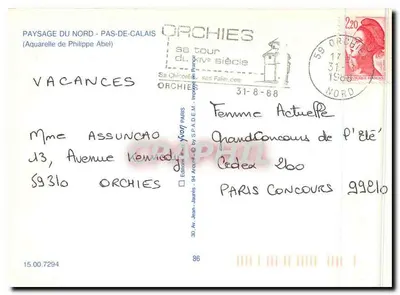 PAYSAGE DU NORD - PAS-DE-CALAIS
(Aquarelle de Philippe Abel)
ORCHIES
sa tour
du XIVe siècle
ORCHIES
31-8-88
59 ORCHIES
17
31-
1988
NORD
2,20
VACANCES
Mme ASSUNCAO
13, Avenue Kennedy
59310 ORCHIES
Yvon PARIS
30, Av. Jean-Jaurès - 94
Femme Actuelle
Grand Concours de l'Eté
Cedex 200
PARIS CONCOURS 99210
15.00.7294
86